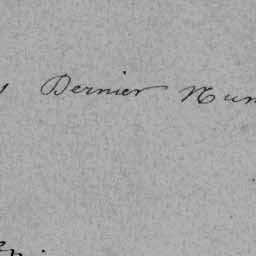 Dernier Num